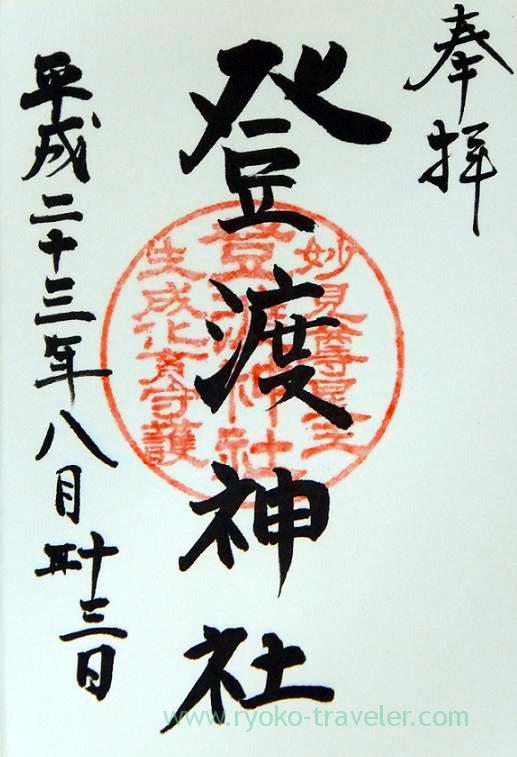 奉拝
登渡神社
妙見尊星王
登渡神社
生成化育守護
平成二十三年八月十三日
www.ryoko-traveler.com